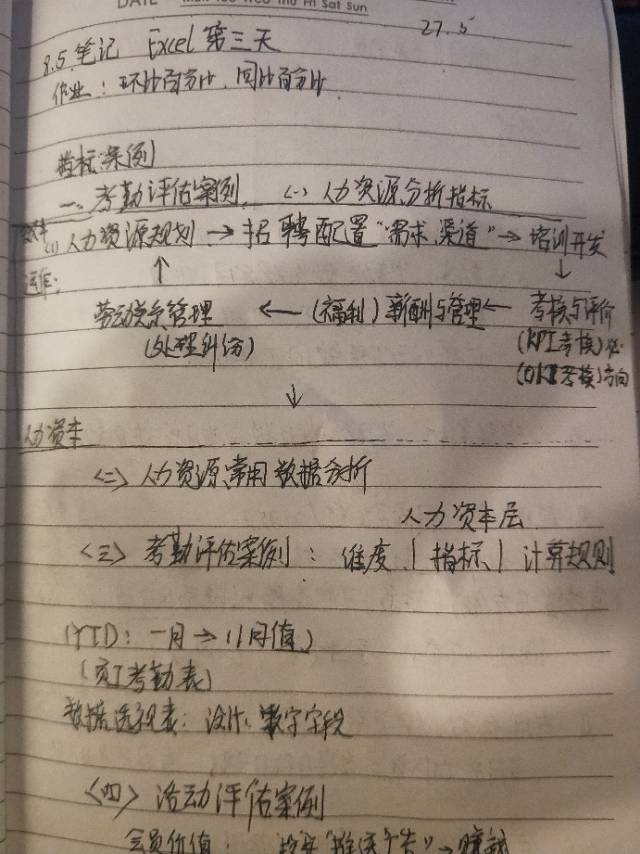 DATE Mon Tue Wed Thu Fri Sat Sun
27.5
8.5 笔记 Excel 第三天
作业: 环比百分比, 同比百分比
指标案例
一、考勤评估案例、 <一> 人力资源分析指标
(1) 人力资源规划 → 招聘配置 "需求、渠道" → 培训开发
↑ ↓
劳动关系管理 ← (福利) 薪酬与管理 ← 考核与评价
(处理纠纷) (KPI考核)
(OKR考核) 方向
↓
人力资本
<二> 人力资源常用数据分析
人力资本层
<三> 考勤评估案例 : 维度 | 指标 | 计算规则
(YTD: 一月 → 11月值)
(员工考勤表)
数据透视表: 设计、数字字段
<四> 活动评估案例
会员价值: "推送广告" →